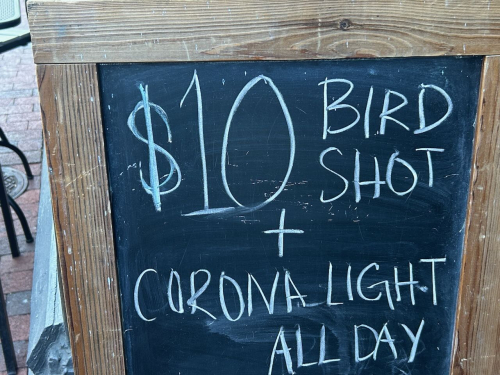 $10 BIRD SHOT
+
CORONA LIGHT
ALL DAY